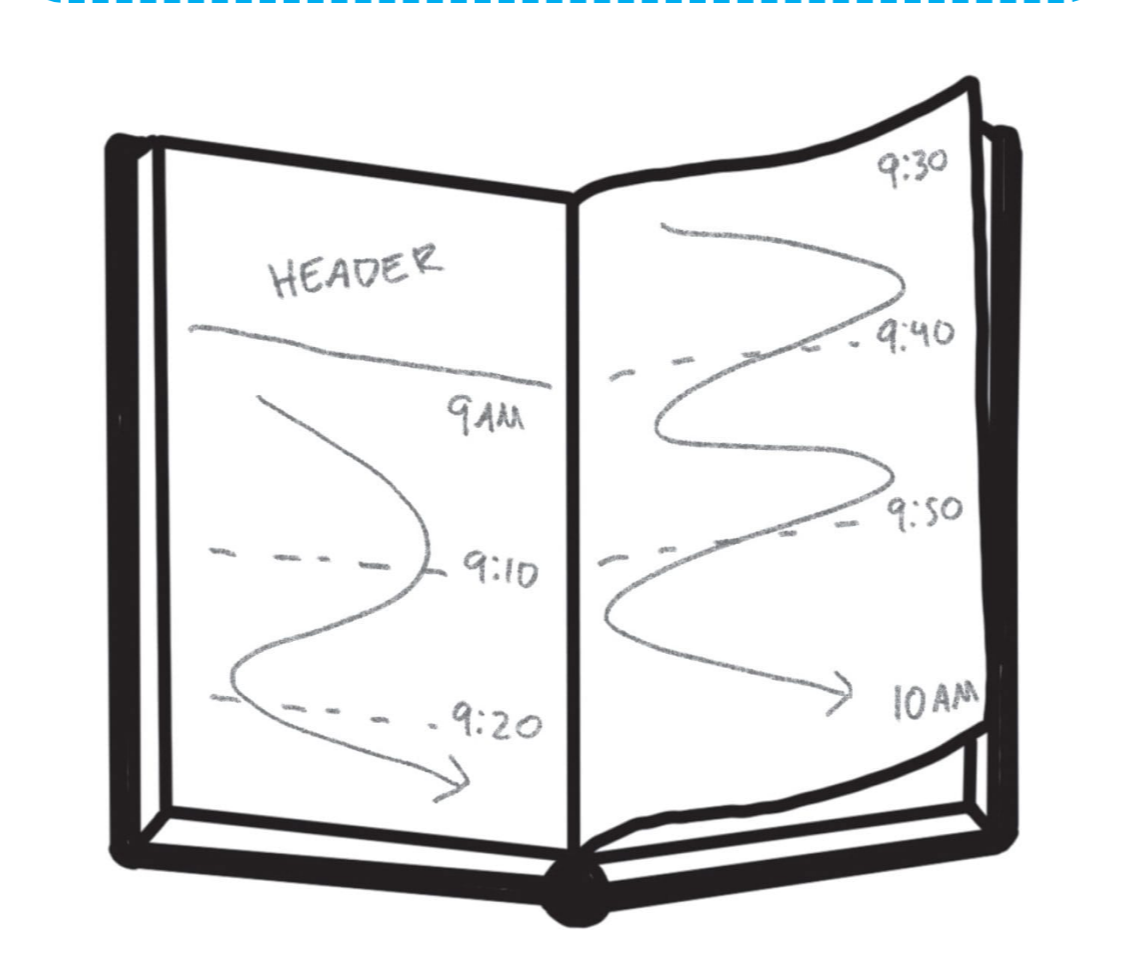 HEADER
9AM
9:10
9:20
9:30
9:40
9:50
10AM